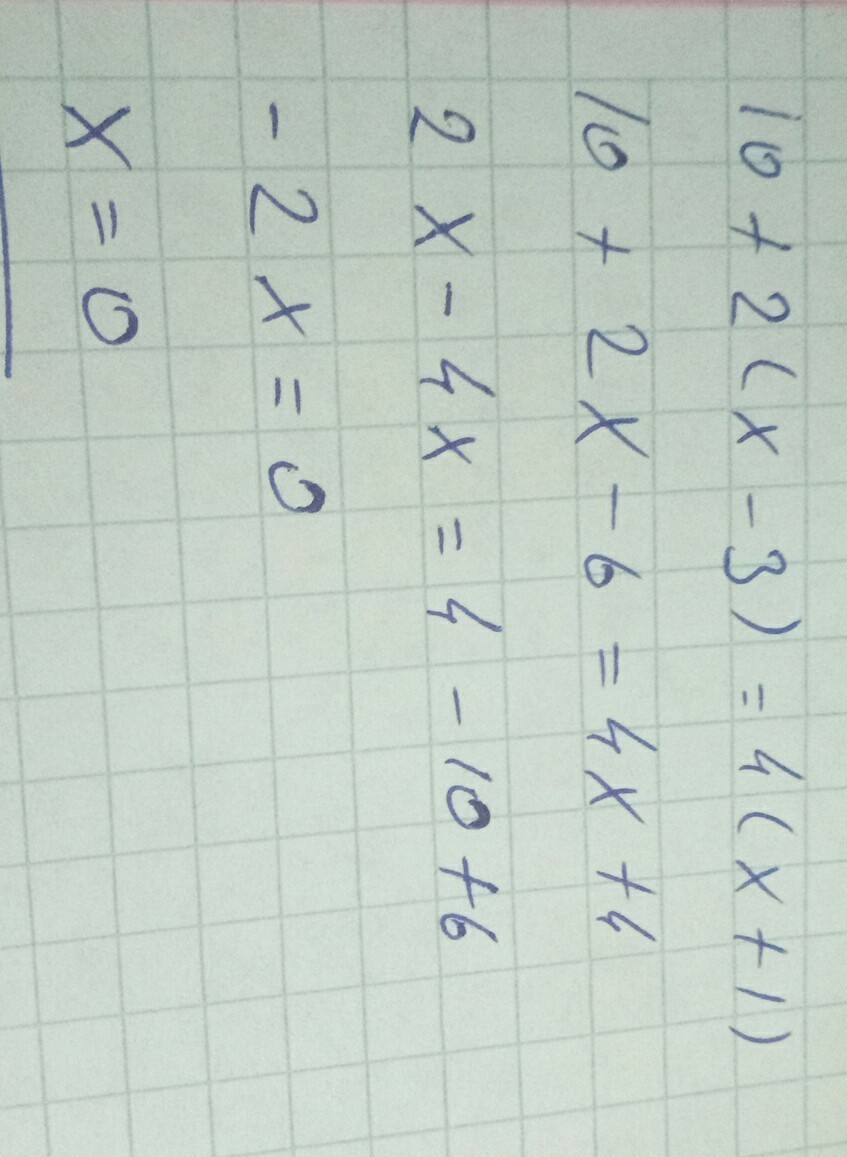 10 + 2 (x - 3) = 4 (x + 1)
10 + 2x - 6 = 4x + 4
2x - 4x = 4 - 10 + 6
- 2x = 0
x = 0